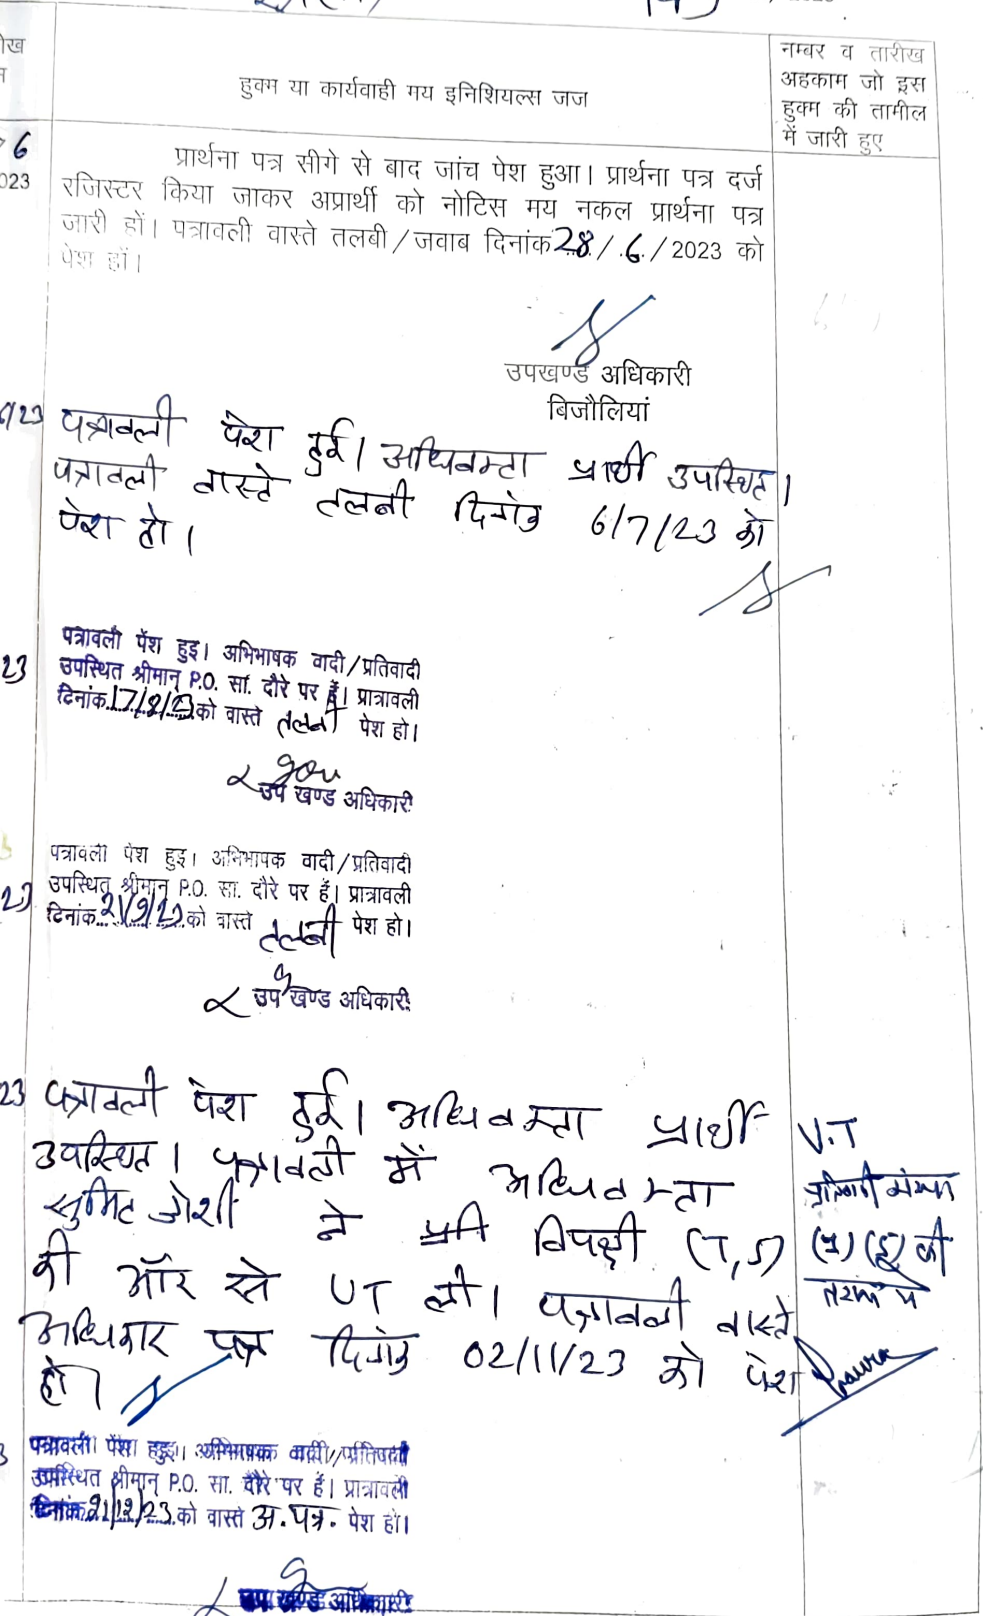 हुक्म या कार्यवाही मय इनिशियल्स जज
नम्बर व तारीख
अहकाम जो इस
हुक्म की तामील
में जारी हुए
6
023
प्रार्थना पत्र सीगे से बाद जांच पेश हुआ। प्रार्थना पत्र दर्ज
रजिस्टर किया जाकर अप्रार्थी को नोटिस मय नकल प्रार्थना पत्र
जारी हों। पत्रावली वास्ते तलबी/जवाब दिनांक 28/.6./2023 को
पेश हों।
उपखण्ड अधिकारी
बिजौलियां
पत्रावली पेश हुई। अधिवक्ता प्रार्थी उपस्थित।
पत्रावली वास्ते तलबी दिनांक 6/7/23 को
पेश हो।
पत्रावली पेंश हुइ। अभिभाषक वादी/प्रतिवादी
23 उपस्थित श्रीमान् P.O. सा. दौरे पर हैं। प्रात्रावली
दिनांक 17/8/23 को वास्ते तलबी पेश हो।
उप खण्ड अधिकारी
पत्रावली पेश हुइ। अभिभापक वादी/प्रतिवादी
उपस्थित् श्रीमान् P.O. सा. दौरे पर हैं। प्रात्रावली
23 दिनांक 21/9/23 को वास्ते तलबी पेश हो।
उप खण्ड अधिकारी
23 पत्रावली पेश हुई। अधिवक्ता प्रार्थी
उपस्थित। पत्रावली में अधिवक्ता
सुमित जोशी ने विपक्षी
की ओर से UT ली। पत्रावली वास्ते
अधिकार पत्र दिनांक 02/11/23 को पेश
हो।
V.T
की
तरफ से
पत्रावली पेंश हुइ। अभिभाषक वादी/प्रतिवादी
उपस्थित श्रीमान् P.O. सा. दौरे पर हैं। प्रात्रावली
दिनांक 21/12/23 को वास्ते अ.पत्र. पेश हो।
उप खण्ड अधिकारी